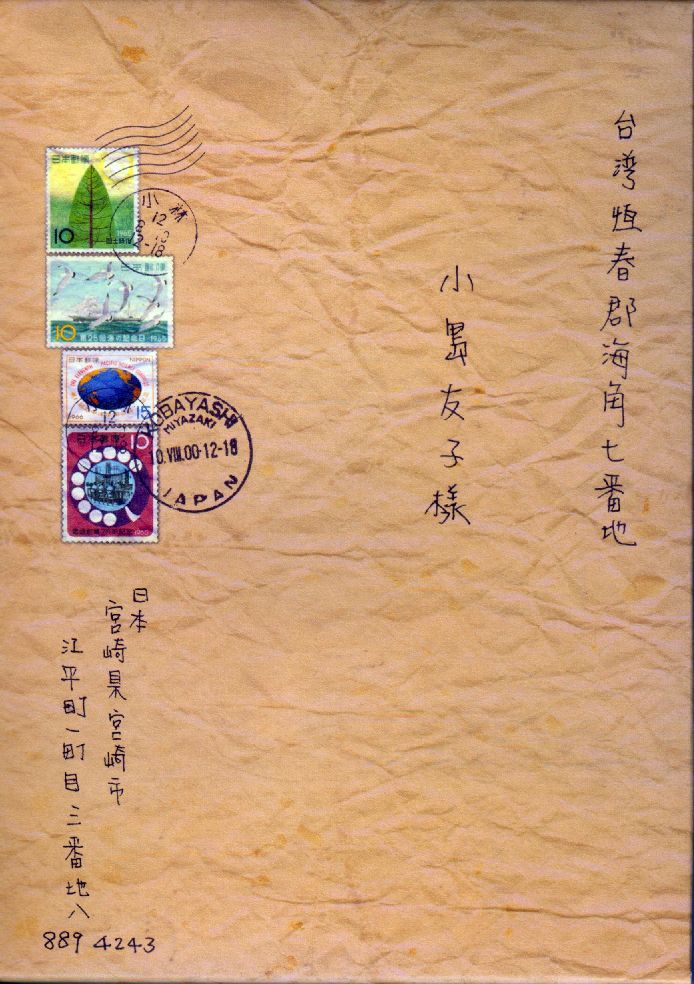 台灣恆春郡海角七番地
小島友子様
日本
宮崎県宮崎市
江平町一町目三番地八
889 4243
日本郵便
10
小林
12
日本郵便
10
日本郵便 NIPPON
1966
15
日本郵便
10
KOBAYASHI
MIYAZAKI
10.VIII.00-12-18
JAPAN